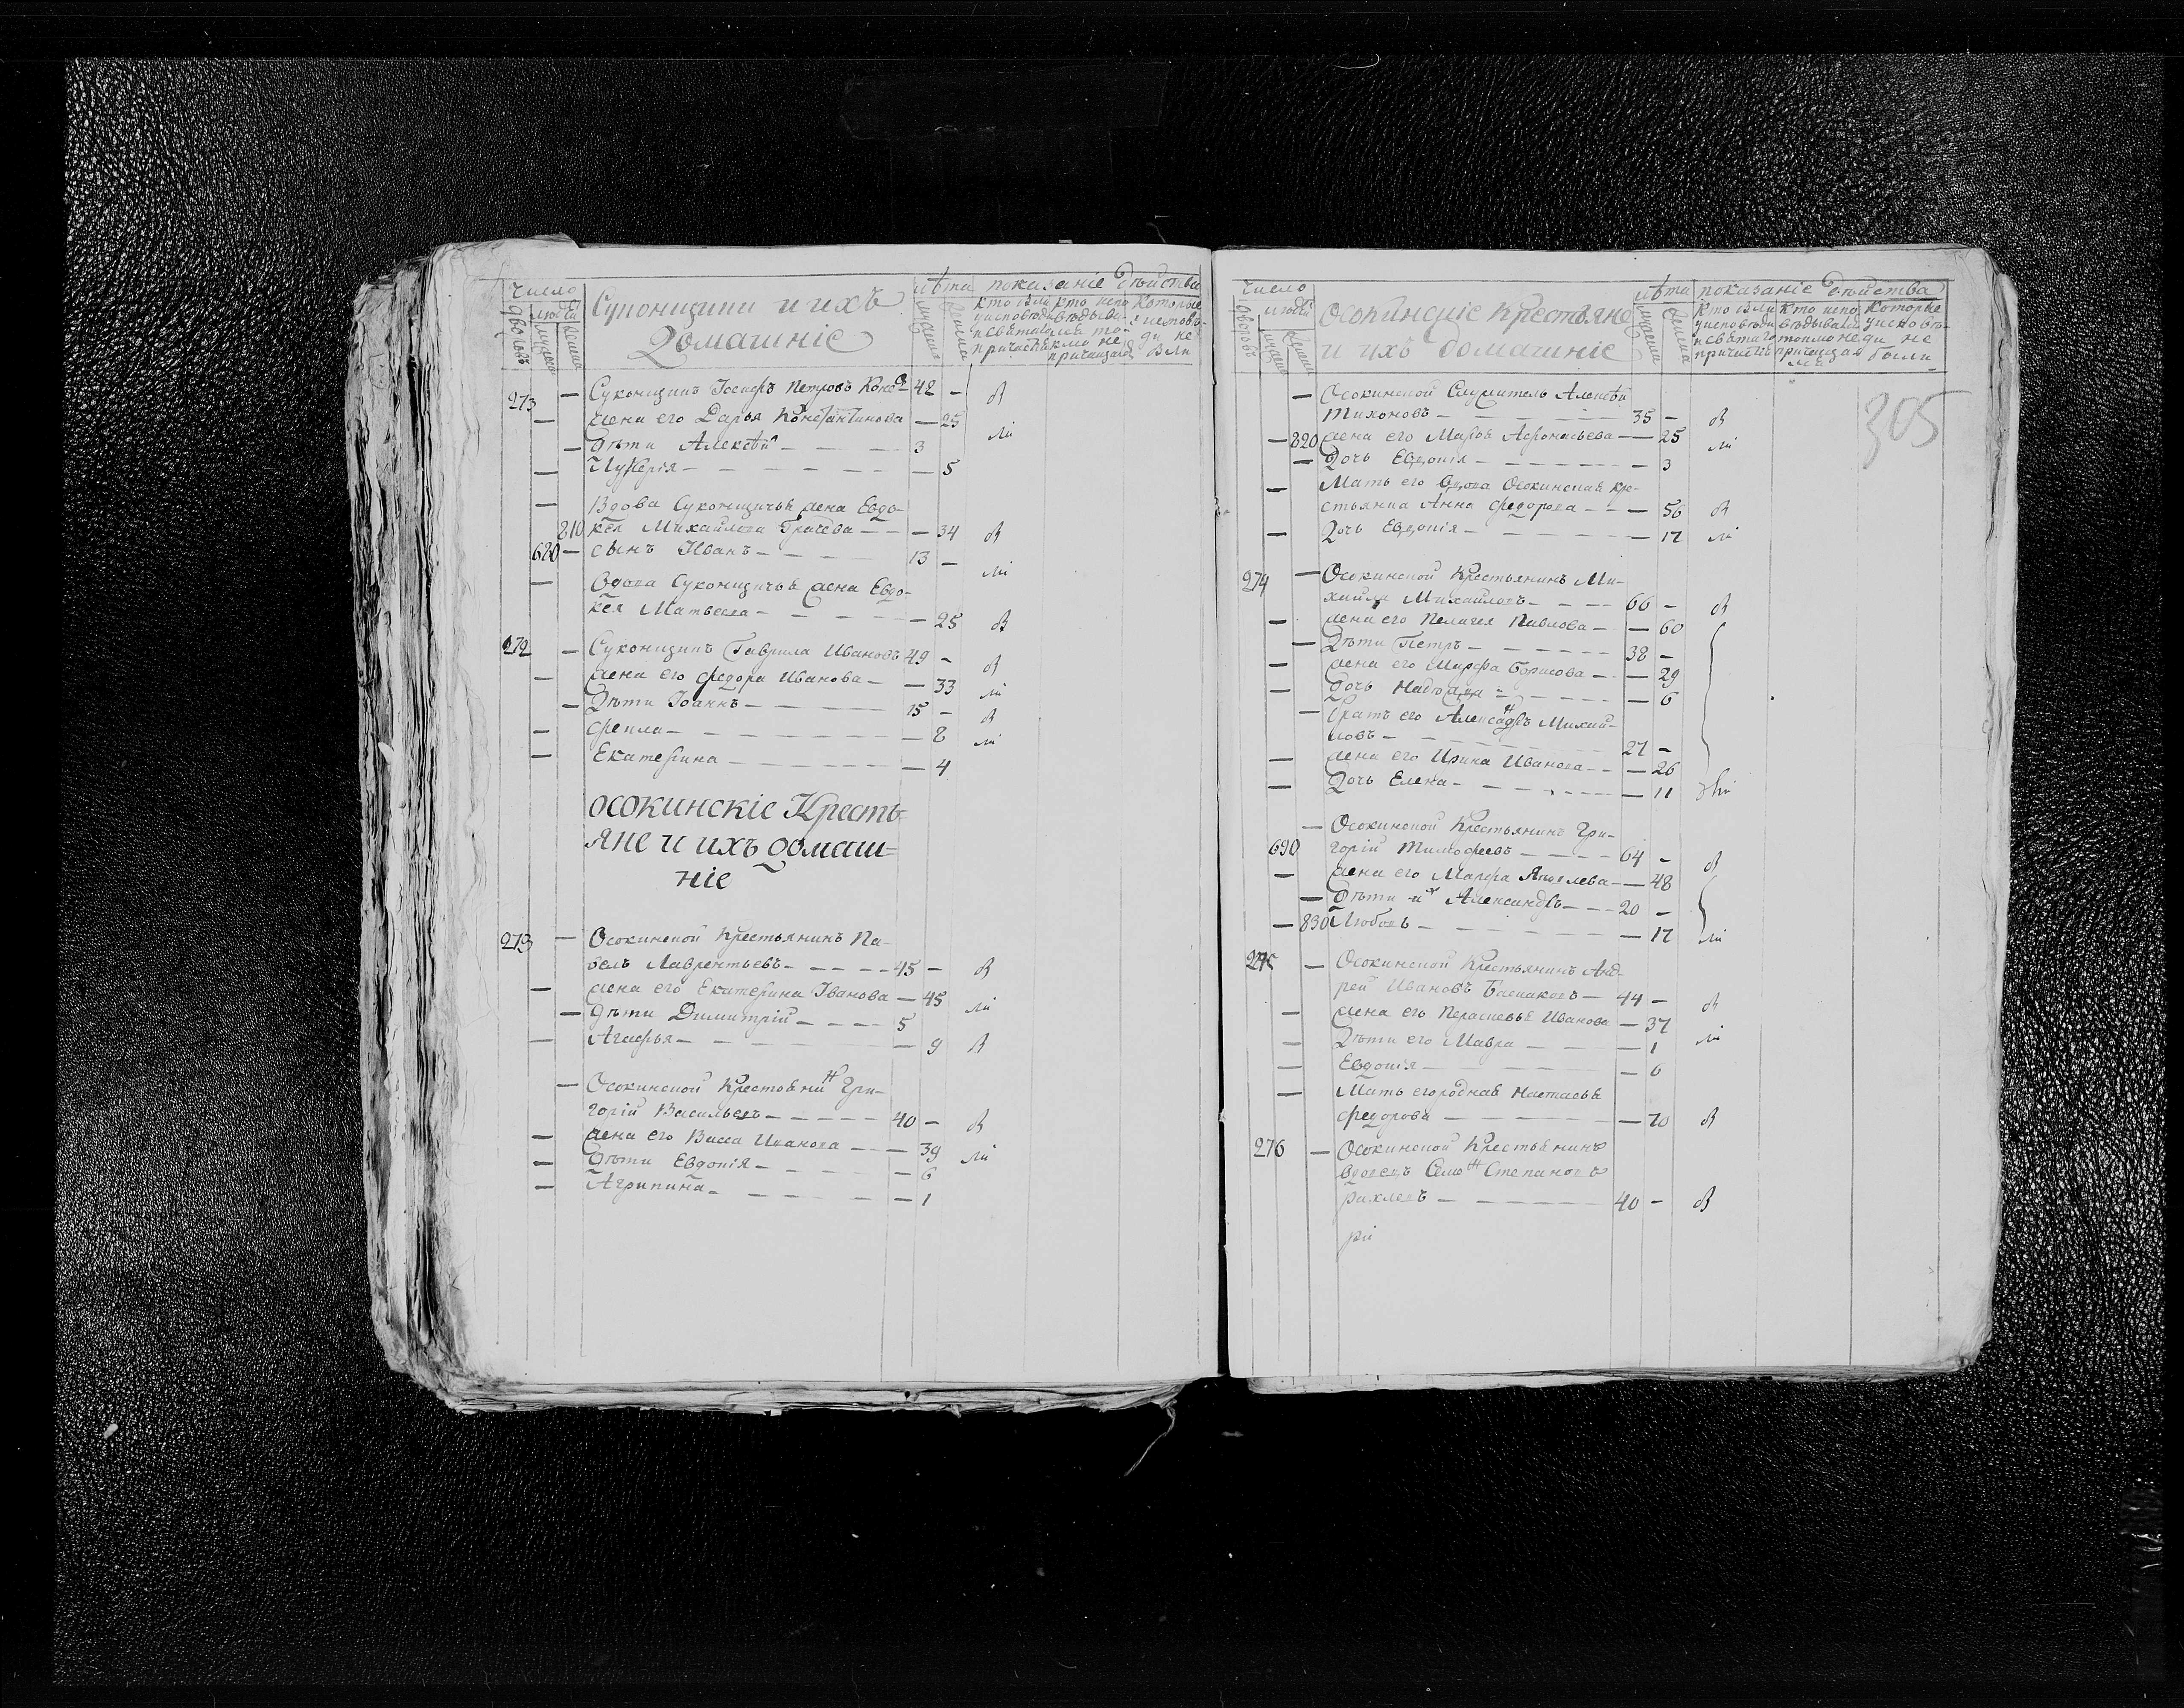 число
людей
дворовъ
мужеска
женска
Суконщики и ихъ
Домашніе
лѣта
мужеска
женска
показаніе дѣйства
кто были
у исповѣди
и святаго
причастія
кто испо
вѣдыва-
лся то
кмо не
причащался
которые
у исповѣ-
ди не
были
273 — Суконщикъ Іосифъ Петровъ 42 — в
— жена его Дарья Константинова — 25
— дѣти Алексѣй — 3
— Лукерія — 5
— Вдова Суконщичья жена Евдо-
810 кея Михайлова — 34
620 — сынъ Иванъ — 13 —
— Вдова Суконщичья жена Евдо-
кея Матвеева — 25
272 — Суконщикъ Гаврила Ивановъ 49 —
— жена его Федора Ивановa — 33
— дѣти Іоаннъ — 15 —
— Фекла — 8
— Екатерина — 4
осокинскіе Кресть-
яне и ихъ домаш-
ніе
273 — Осокинской Крестьянинъ Па-
велъ Лаврентьевъ — 45 —
— жена его Екатерина Іванова — 45
— дѣти Димитрій — 5
— Агафья — 9
— Осокинской Крестьянинъ Гри-
горій Васильевъ — 40 —
— жена его Васса Иванова — 39
— дѣти Евдокія — 6
— Агрипина — 1
число
людей
дворовъ
мужеска
женска
Осокинскіе Крестьяне
и ихъ домашніе
лѣта
мужеска
женска
показаніе дѣйства
кто были
у исповѣди
и святаго
причастія
кто испо
вѣдывался
токмо не
причащал
ся
которые
у исповѣ-
ди не
были
305
— Осокинской Служитель Алексѣй
Тихоновъ — 35 —
— 820 жена его Мавра Афонасьева — 25
— Дочь Евдокія — 3
— Мать его вдова Осокинская кре-
стьянка Анна Федорова — 56
— Дочь Евдокія — 17
274 — Осокинской Крестьянинъ Ми-
хайла Михайловъ — 66 —
— жена его Пелагея Павлова — 60
— Дѣти Петръ — 38 —
— жена его Марфа Борисова — 29
— дочь Надежда — 6
— братъ его Александръ Михай-
ловъ — 27 —
— жена его Ирина Иванова — 26
— Дочь Елена — 11
— Осокинской Крестьянинъ Гри-
690 горій Тимофеевъ — 64 —
— жена его Марфа Яковлева — 48
— Дѣти их Александръ — 20 —
— 830 Любовь — 17
275 — Осокинской Крестьянинъ Анд-
рей Ивановъ — 44 —
— жена его Парасковья Иванова — 37
— Дѣти его Мавра — 1
— Евдокія — 6
— Мать его родная Настасья
Федорова — 70
276 — Осокинской Крестьянинъ
вдовецъ Семенъ Степановъ
Рахлевъ — 40 —